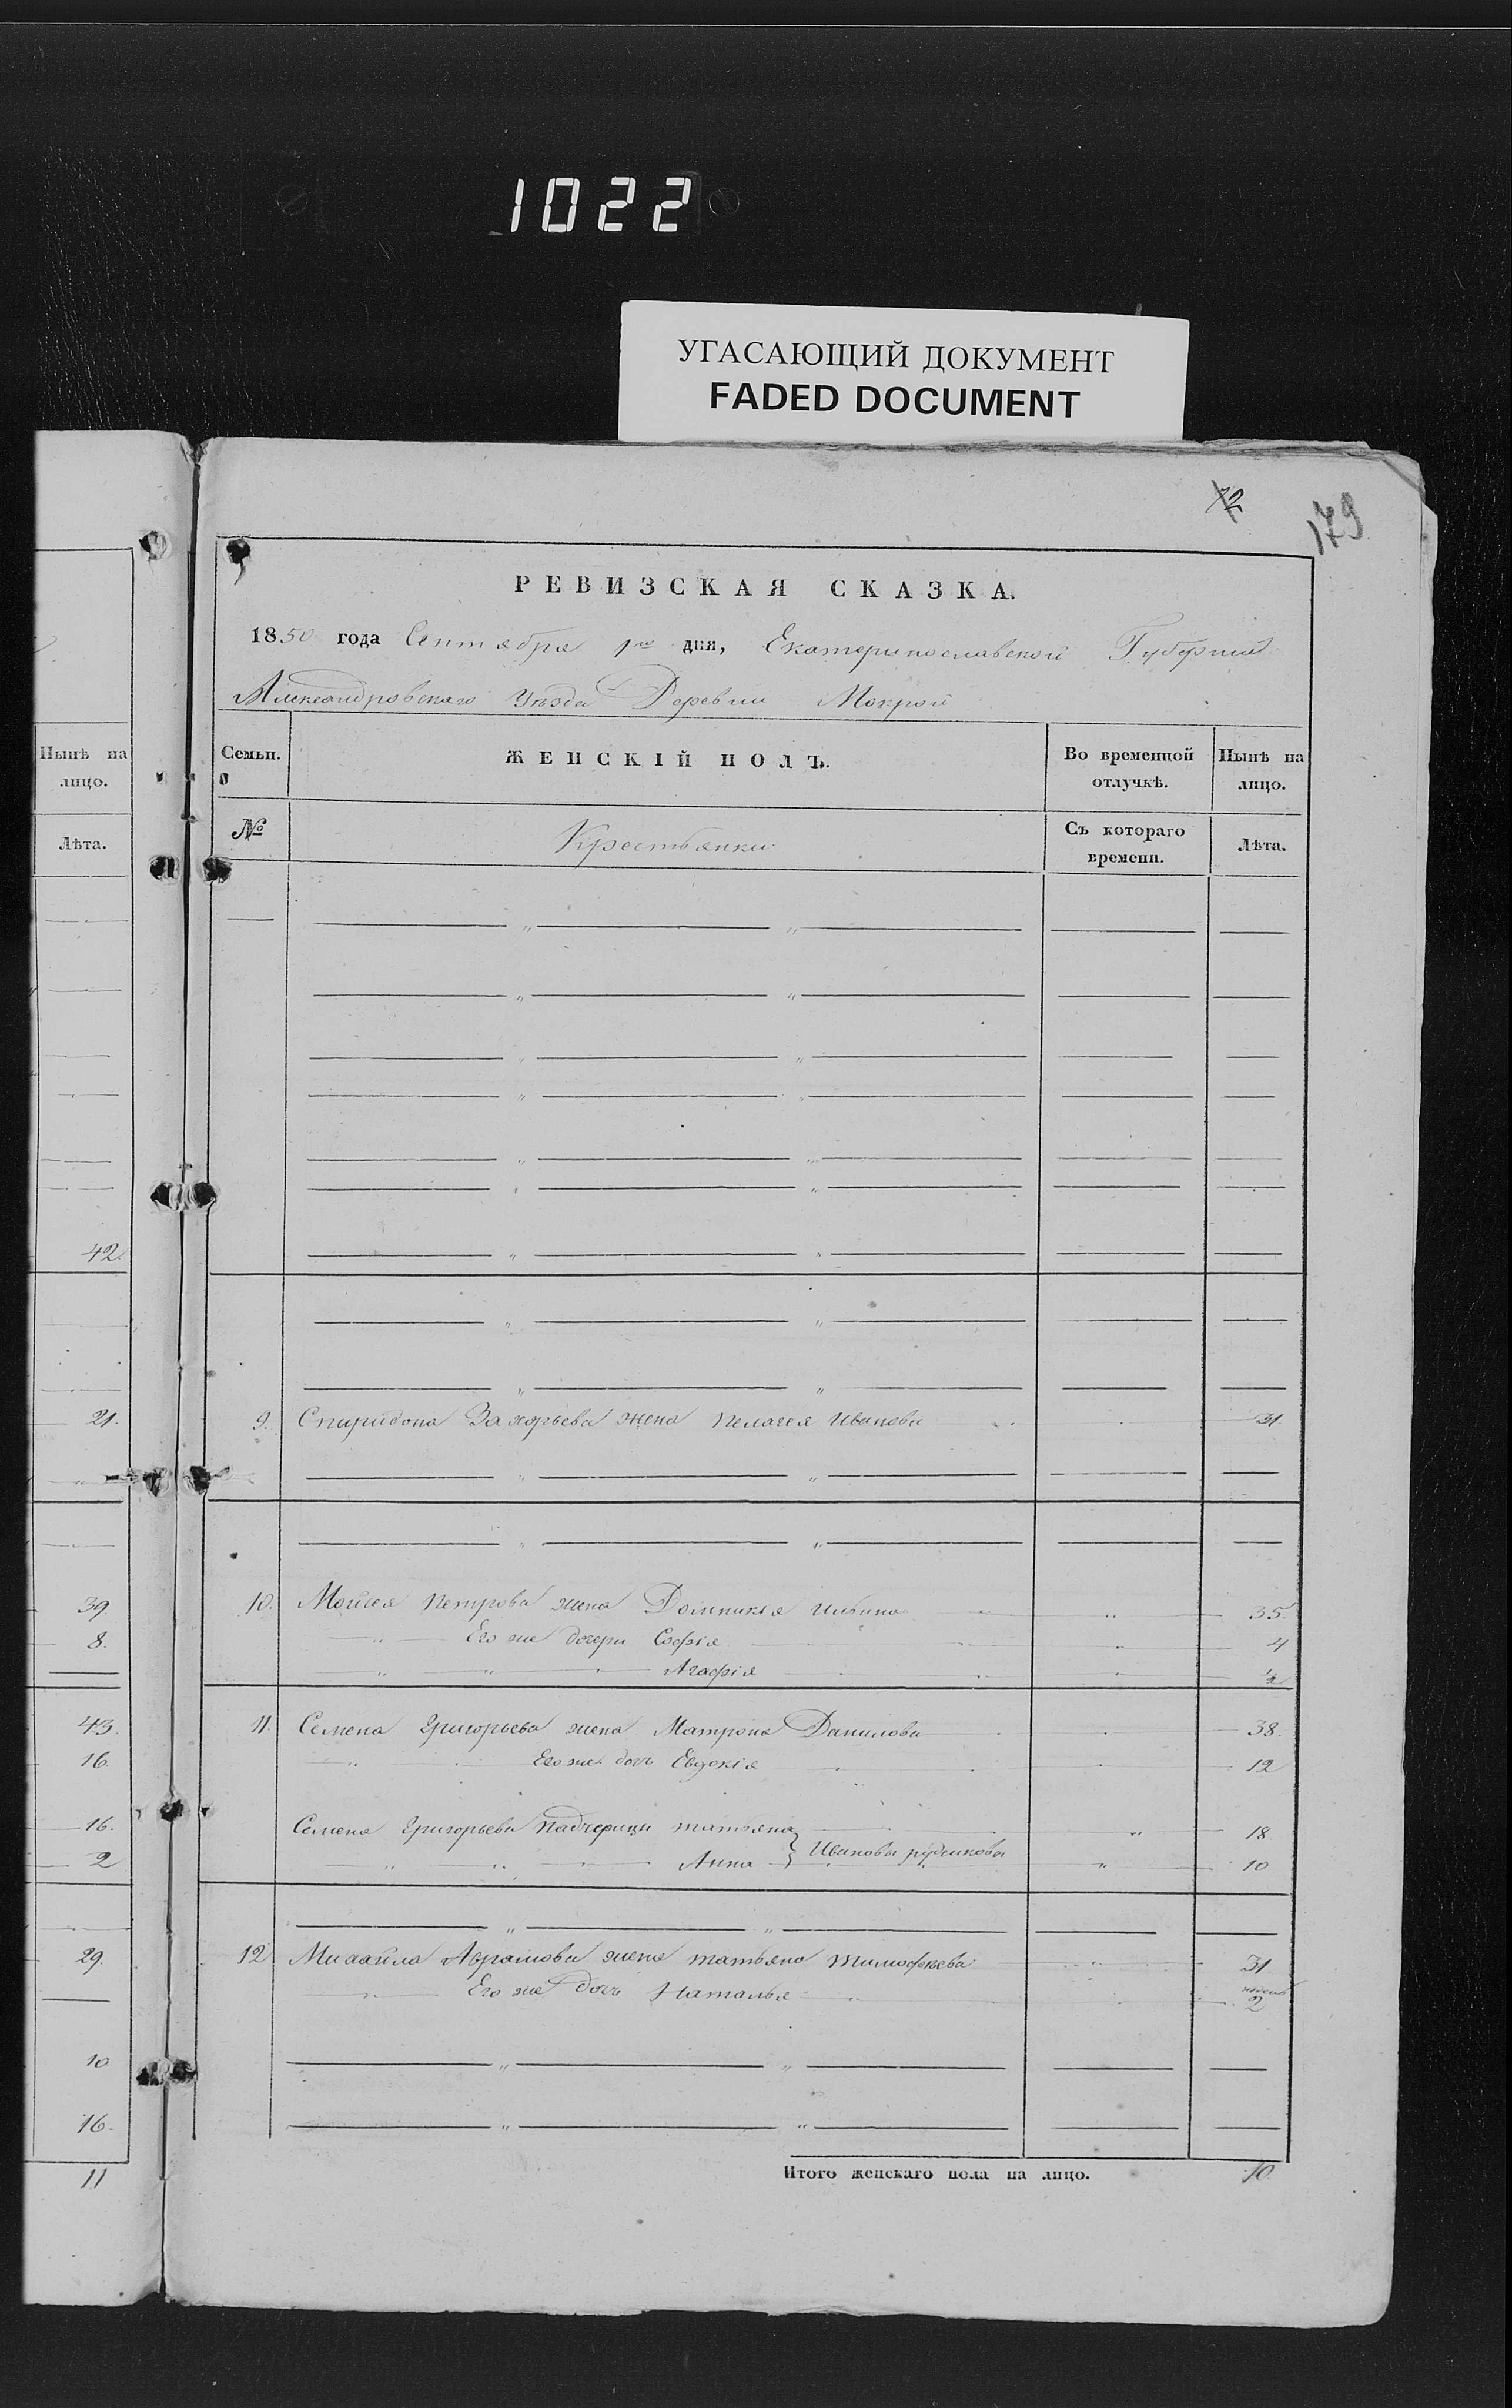 1022
УГАСАЮЩИЙ ДОКУМЕНТ
FADED DOCUMENT
72
179
РЕВИЗСКАЯ СКАЗКА.
1850 года Сентября 1го дня, Екатеринославской Губернии
Александровскаго Уѣзда Деревни Мокрой
Нынѣ на лицо.
Лѣта.
Семьи.
ЖЕНСКІЙ ПОЛЪ.
Во временной отлучкѣ.
Нынѣ на лицо.
№
Крестьянки
Съ котораго времени.
Лѣта.
42
21.
9. Спиридона Захорьева жена Пелагея Иванова 31.
39
10. Мойсея Петрова жена Домникія Ильина 35.
8.
Его же дочери Софія 4
Агафія ½
43.
11. Семена Григорьева жена Матрона Данилова 38.
16.
Его же дочь Евдокія 12
16.
Семена Григорьева падчерицы татьяна 18
2
Анна } Ивановы 10
29.
12 Михайла Аврамова жена татьяна тимофѣева 31
Его же дочь Наталья недель 2
10
16.
Итого женскаго пола на лицо. 10
11